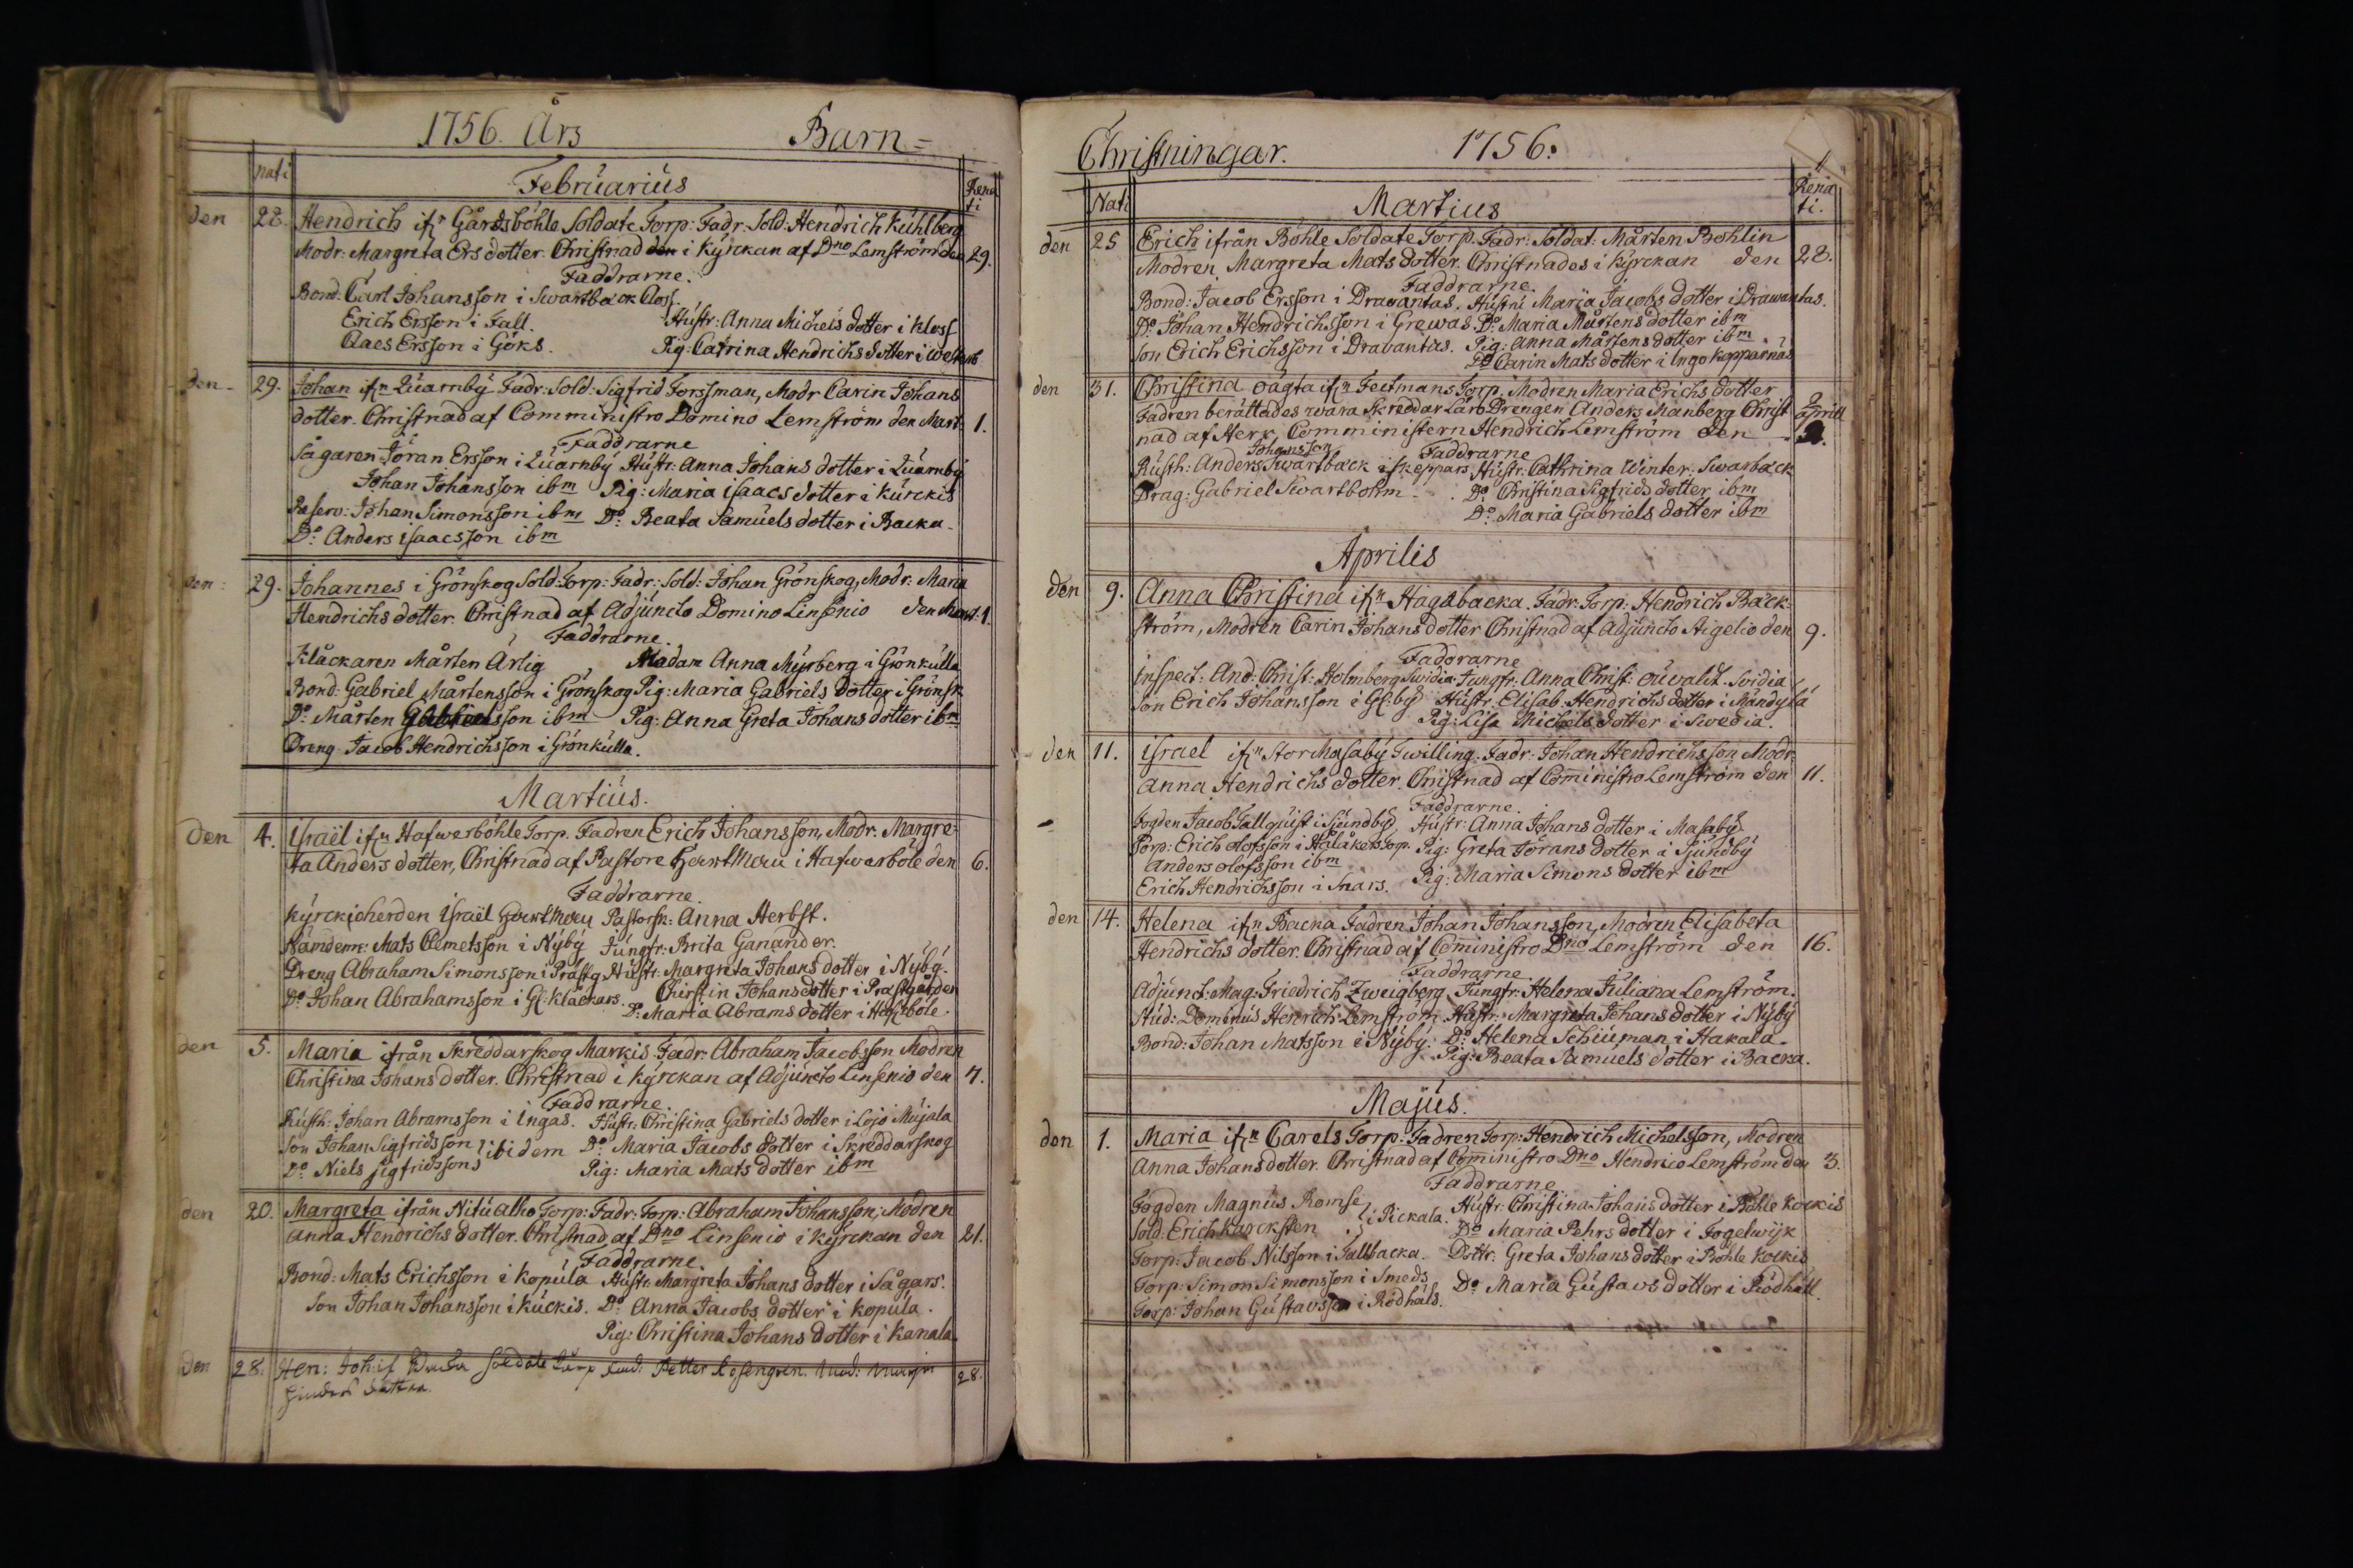 1756. Års Barn=
nati
Februarius
Rena
ti
den 28. Hendrich ifr Gårdsböhle Soldate Torp: Fadr. Sold: Hendrich Kuhlberg
Modr: Margreta Ers dotter. Christnad i Kyrckan af Dno Lemström den 29.
Faddrarne.
Bond: Carl Johansson i Swartback Closs.
Erich Ersson i Fall. Hustr: Anna Michels dotter i Kloss
Claes Ersson i Göks. Pig: Catrina Hendrichs dotter i
den 29. Johan ifn Quarnby Fadr: Sold: Sigfrid Forssman, Modr Carin Johans
dotter. Christnad af Comministro Domino Lemström den Mart: 1.
Faddrarne
Sågaren Jöran Ersson i Quarnby Hustr: Anna Johans dotter i Quarnby
Johan Johansson ibm Pig: Maria isaacs dotter i Kurckis
Reserv: Johan Simonsson ibm Do Beata Samuels dotter i Backa
Do: Anders isaacsson ibm
den: 29. Johannes i Grönskog Sold: Torp: Fadr: Sold: Johan Grönskog, Modr: Maria
Hendrichs dotter. Christnad af Adjuncto Domino Linsenio den Mart: 1.
Faddrarne.
Klåckaren Mårten Ärlig Madam Anna Myrberg i Grönkulla
Bond: Gabriel Mårtensson i Grönskog Pig: Maria Gabriels dotter i Grönsk
Do: Mårten Gabrielsson ibm Pig: Anna Greta Johans dotter ibm
Dreng Jacob Hendrichsson i Grönkulla.
Martius.
Den 4. Israël ifn Hafwerböhle Torp. Fadren Erich Johansson, Modr. Margre=
ta Anders dotter, Christnad af Pastore i Hafwerbole den 6.
Faddrarne.
Kyrckioherden Israël Pastorsk: Anna Herbst.
Nämdem: Mats Clemetsson i Nyby Jungfr: Brita Ganander.
Dreng Abraham Simonsson i Prästg Hustr. Margreta Johans dotter i Nyby.
Do Johan Abrahamsson i Gl: Klåckars. Chirstin Johans dotter i Prästgården
Do: Maria Abrams dotter i
den 5. Maria ifrån Skreddarskog Markis. Fadr: Abraham Jacobsson Modren
Christina Johans dotter. Christnad i Kyrckan af Adjuncto Linsenio den 7.
Faddrarne.
Rusth: Johan Abramsson i Ingas. Hustr: Christina Gabriels dotter i Lojo Mujala
Son Johan Sigfridsson } ibidem Do Maria Jacobs dotter i Skreddarskog
Do Niels Sigfridsson Pig: Maria Mats dotter ibm
den 20. Margreta ifrån Torp: Fadr: Torp: Abraham Johansson, Modren
Anna Hendrichs dotter. Christnad af Dno Linsenio i Kyrckan den 21.
Faddrarne.
Bond: Mats Erichsson i Kopula Hustr: Margreta Johans dotter i Sågars.
Son Johan Johansson i Kuckis. Do Anna Jacobs dotter i Kopula.
Pig: Christina Johans dotter i Kanala
den 28. Hen: Joh: if Soldate Torp Fad: Petter Rosengren. Mod: 28.
Christningar. 1756.
Nati
Martius
Rena
ti.
den 25 Erich ifrån Böhle Soldate Torp. Fadr: Soldat: Mårten Bohlin
Modren Margreta Mats dotter. Christnades i Kyrckan den 28.
Faddrarne.
Bond: Jacob Ersson i Dravantas. Hustru Maria Jacobs dotter i Drawantas.
Do: Johan Hendrichsson i Grewas. Do: Maria Mårtens dotter ibm
Son Erich Erichsson i Dravantas. Pig: Anna Mårtens dotter ibm
Do Carin Mats dotter i Ingo Kopparnäs
den 31. Christina oägta ifn Feetmans Torp. Modren Maria Erichs dotter
Fadren berättades wara Skreddar Läro Drengen Anders Manberg Christ
nad af Herr Comministern Hendrich Lemström den 2 aprill
Faddrarne
Rusth: Anders Johansson Swartback i Skeppars Hustr: Cathrina Winter. Swarback
Drag: Gabriel Swartbohm. Do Christina Sigfrids dotter ibm
Do: Maria Gabriels dotter ibm
Aprilis
Den 9. Anna Christina ifn Hagabacka. Fadr: Torp: Hendrich Bäck=
ström, Modren Carin Johans dotter Christnad af Adjuncto Aigelio den 9.
Faddrarne
Inspect: And: Christ: Holmberg Svidia Jungfr: Anna Christ: Svidia
Son Erich Johansson i Gl:by Hustr. Elisab: Hendrichs dotter i
Pig: Lisa Michels dotter i Swedia.
den 11. Israel ifn Stor Masaby Twilling. Fadr: Johan Hendrichsson Modr:
Anna Hendrichs dotter. Christnad af Cominstro Lemström den 11.
Faddrarne.
Fogden Jacob Tallquist i Sjundby Hustr: Anna Johans dotter i Masaby
Torp: Erich Olofsson i Torp. Pig: Greta Jörans dotter i Sjundby
Anders Olofsson ibm
Erich Hendrichsson i Snars. Pig: Maria Simons dotter ibm
den 14. Helena ifn Backa Fadren Johan Johansson, Modren Elisabeta
Hendrichs dotter. Christnad af Cominstro Dno Lemström den 16.
Faddrarne
Adjunct: Mag: Friedrich Zweigberg Jungfr: Helena Juliana Lemström.
Stud: Dominus Henrich Lemström Hustr: Margreta Johans dotter i Nyby
Bond: Johan Matsson i Nyby. Do Helena Schiuman i Hakala.
Pig: Beata Samuels dotter i Backa.
Majus.
den 1. Maria ifn Carels Torp: Fadren Torp: Hendrich Michelsson, Modren
Anna Johans dotter. Christnad af Cominstro Dno Hendrico Lemström den 3.
Faddrarne
Fogden Magnus Romse } i Pickala. Hustr: Christina Johans dotter i Böhle Kockis
Sold: Erich Do Maria Pehrs dotter i Fogelwijk
Torp: Jacob Nilsson i Tallbacka. Dottr: Greta Johans dotter i Böhle Kockis
Torp: Simon Simonsson i Smeds Do Maria Gustavs dotter i Rödhäll.
Torp: Johan Gustavsson i Rödhäls.